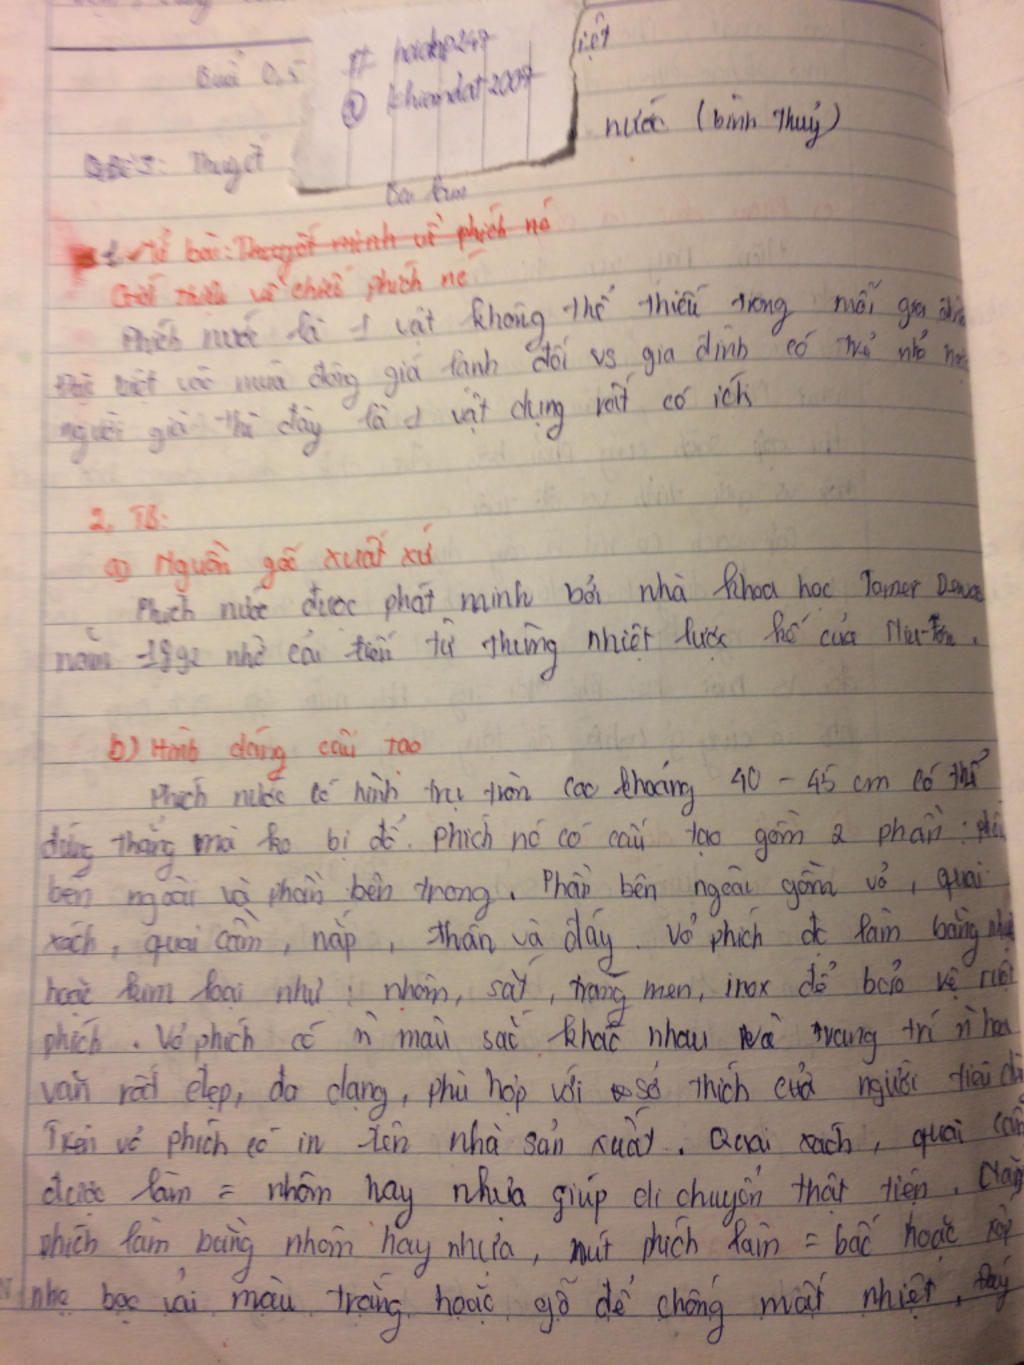 Buổi 0,5
pt hoidap247
@ khiemdat2007
iệt
nước (bình thuỷ)
Đề 3: Thuyết
Bài làm
1. Mở bài: Thuyết minh về phích nó
Giới thiệu về chiếc phích nó
Phích nước là 1 vật không thể thiếu trong mỗi gia đình
Đặc biệt vào mùa đông giá lạnh đối vs gia đình có trẻ nhỏ hoặc
người già thì đây là 1 vật dụng rất có ích
2. TB:
a) Nguồn gốc xuất xứ
Phích nước được phát minh bởi nhà khoa học Jamer Dewar
năm 1892 nhờ cải tiến từ thùng nhiệt lượng kế của Niu-tơn.
b) Hình dáng cấu tạo
Phích nước có hình trụ tròn cao khoảng 40 - 45 cm có thể
đứng thẳng mà ko bị đổ. Phích nó có cấu tạo gồm 2 phần: phần
bên ngoài và phần bên trong. Phần bên ngoài gồm vỏ, quai
xách, quai cầm, nắp, thân và đáy. Vỏ phích đc làm bằng nhựa
hoặc kim loại như: nhôm, sắt, tráng men, inox để bảo vệ ruột
phích. Vỏ phích có n màu sắc khác nhau và trang trí n hoa
văn rất đẹp, đa dạng, phù hợp với sở thích của người tiêu dù
Trên vỏ phích có in tên nhà sản xuất. Quai xách, quai cầm
được làm = nhôm hay nhựa giúp di chuyển thật tiện. Nắp
phích làm bằng nhôm hay nhựa, nút phích làm = bấc hoặc xốp
nhẹ bọc vải màu trắng hoặc gỗ để chống mất nhiệt. Đáy